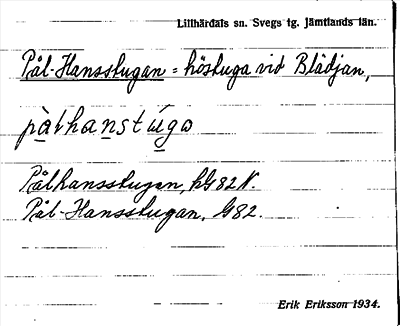 Lillhärdals sn. Svegs tg. Jämtlands län.
Pål-Hansstugan = höstuga vid Blådjan,
pàlhanstúga
Pålhansstugan, hG 82 N.
Pål-Hansstugan, G 82.
Erik Eriksson 1934.